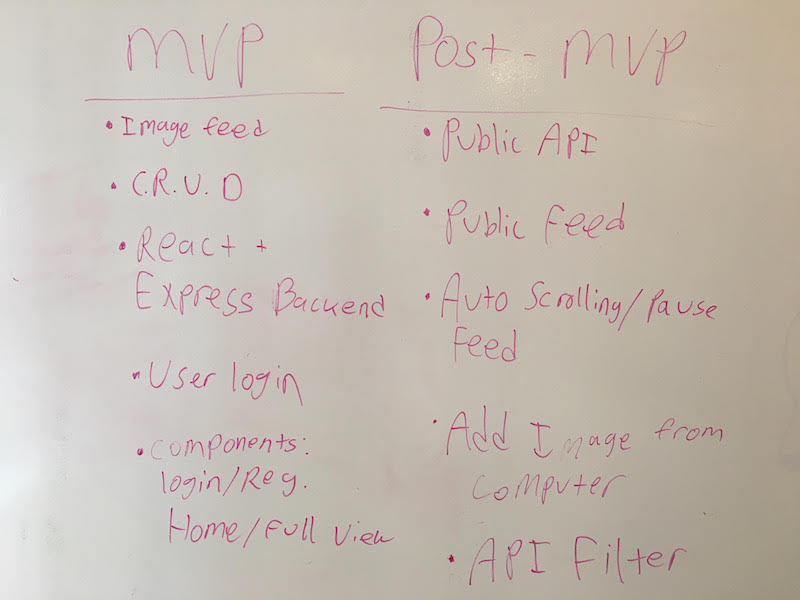 MVP
• Image feed
• C.R.U.D
• React +
Express Backend
• User login
• Components:
login/Reg.
Home/Full View
Post-MVP
• Public API
• Public Feed
• Auto Scrolling/Pause
Feed
• Add Image from
Computer
• API Filter